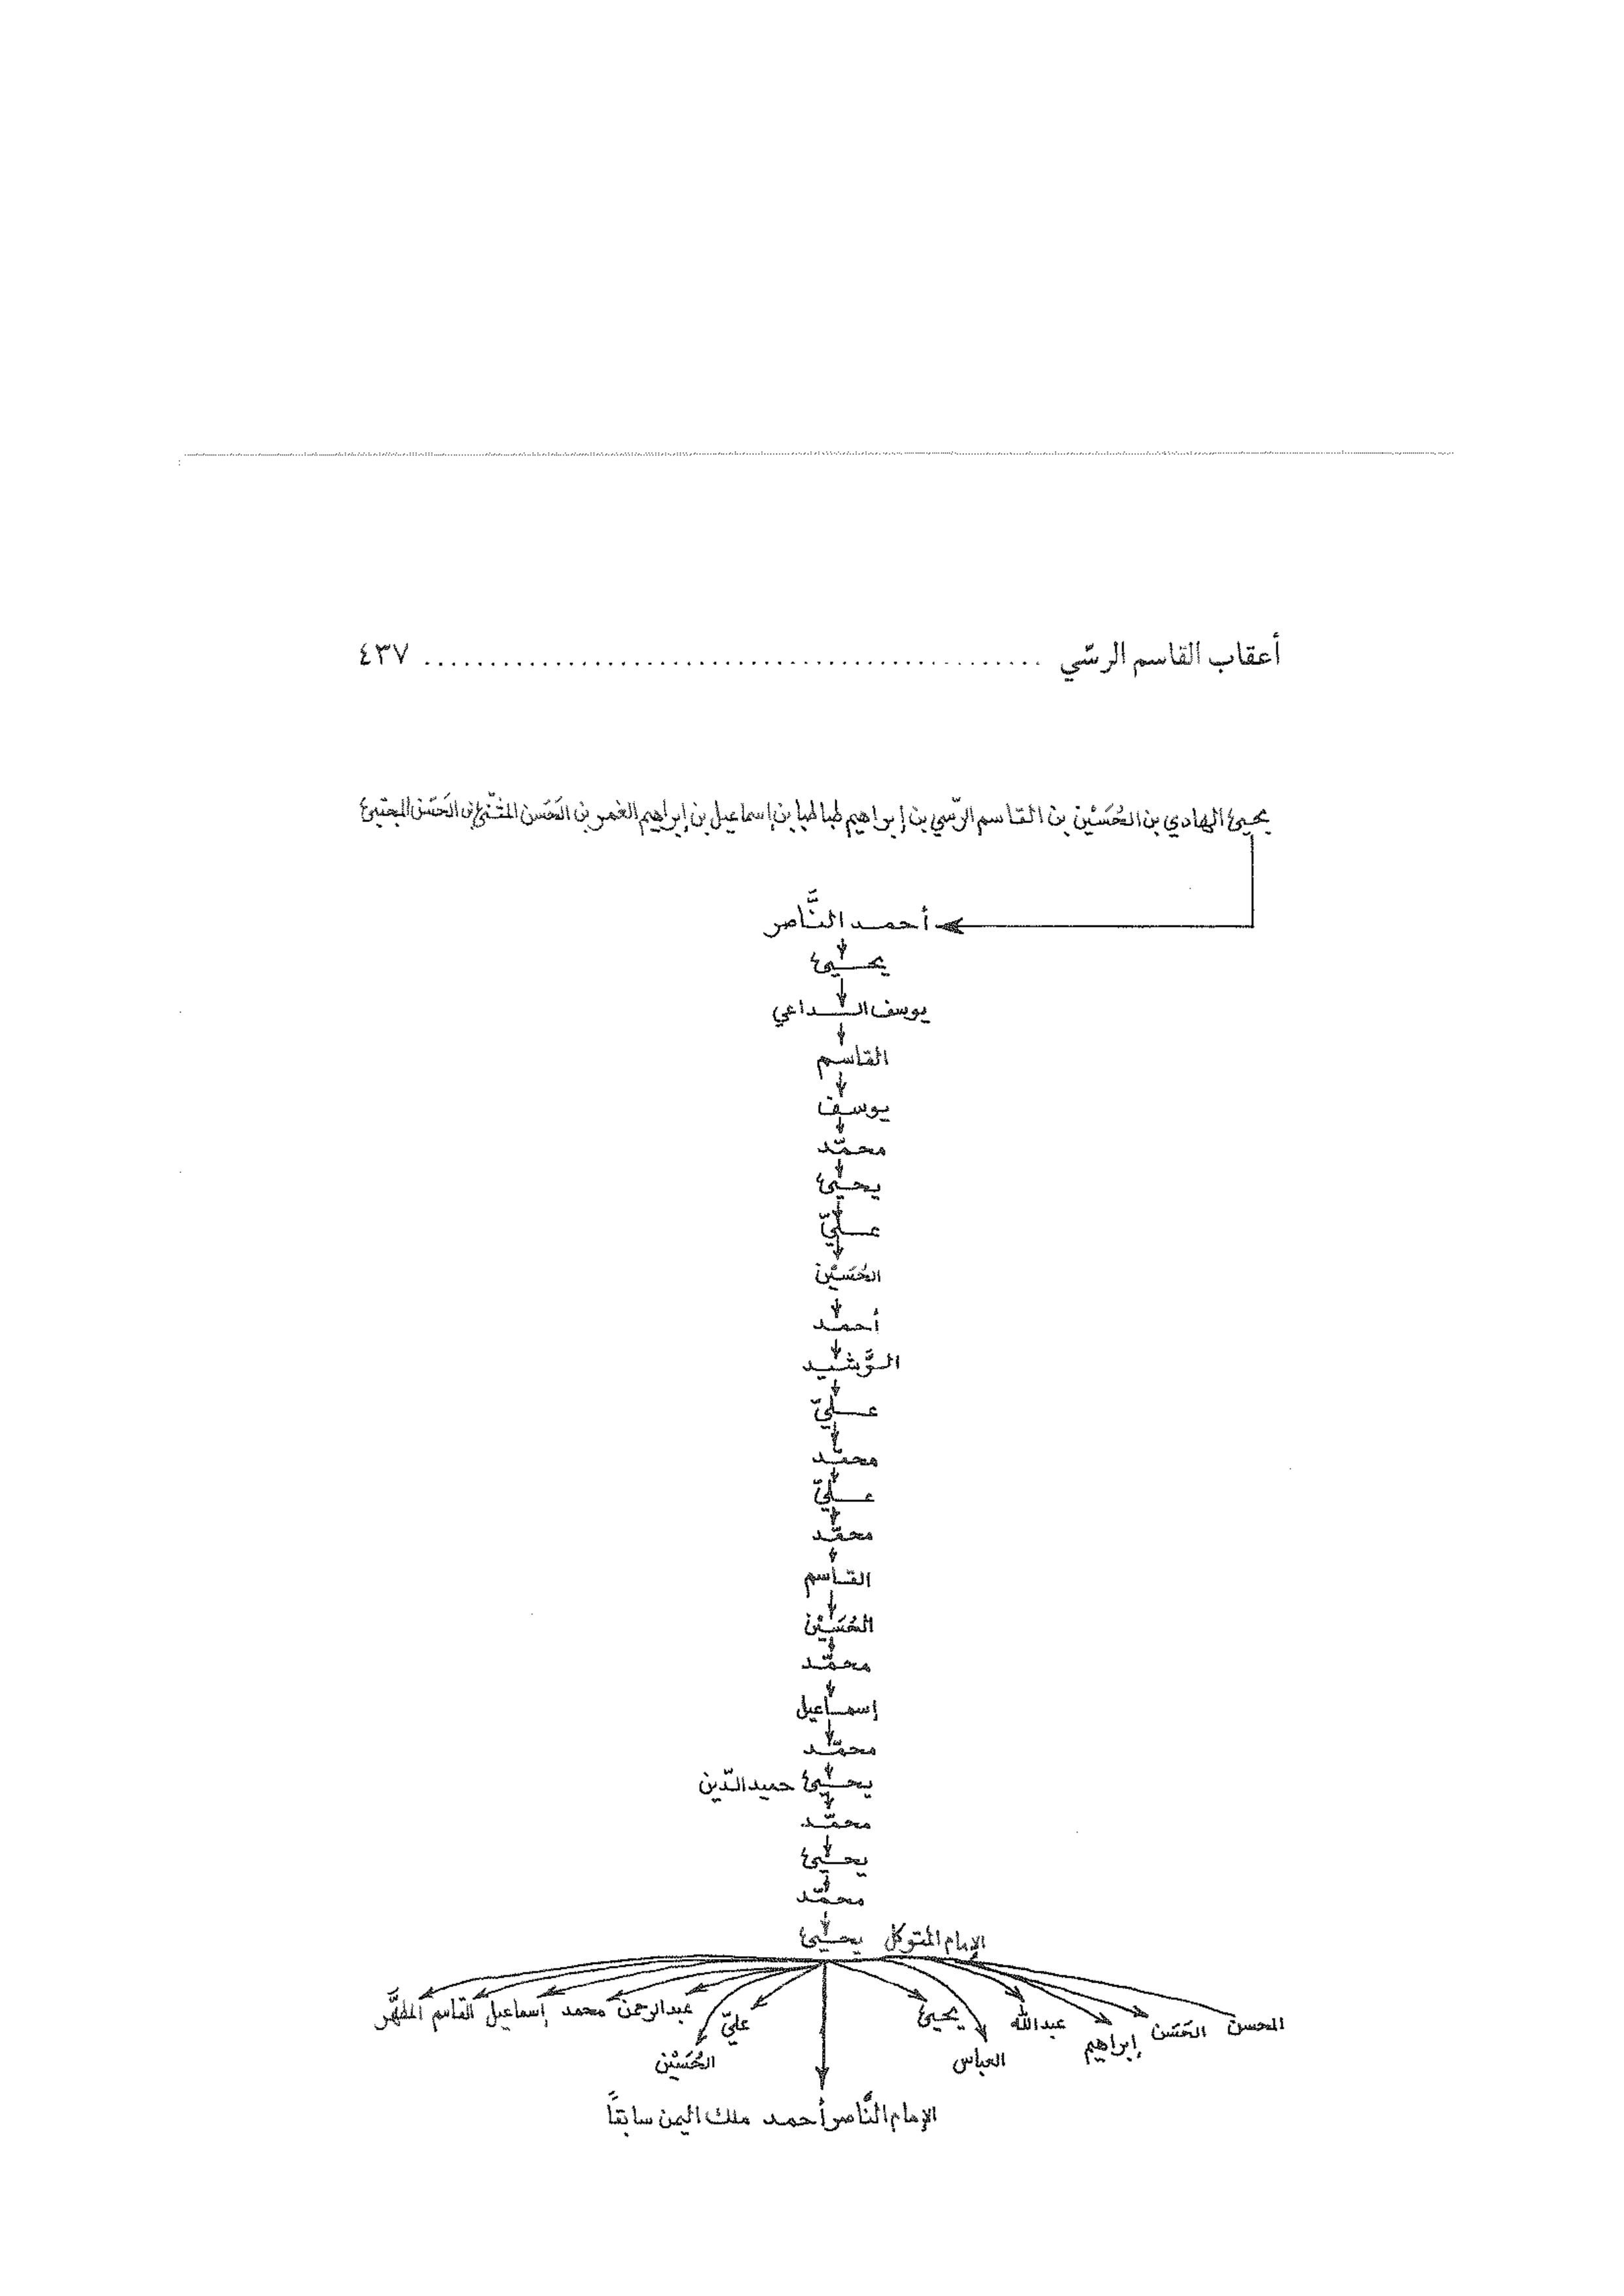 أعقاب القاسم الرسّي ........................................ ٤٣٧
يحيى الهادي بن الحُسَيْن بن القاسم الرّسي بن إبراهيم طباطبا بن إسماعيل بن إبراهيم الغمر بن الحَسَن المثنّى بن الحَسَن المجتبى
أحمد النَّاصر
يحيى
يوسف الداعي
القاسم
يوسف
محمّد
يحيى
عليّ
الحُسَيْن
أحمد
الرَّشيد
عليّ
محمّد
عليّ
محمّد
القاسم
الحُسَيْن
محمّد
إسماعيل
محمّد
يحيى حميد الدّين
محمّد
يحيى
محمّد
الإمام المتوكل يحيى
المحسن الحَسَن إبراهيم عبدالله العباس يحيى عليّ الحُسَيْن عبدالرحمن محمد إسماعيل القاسم المطهَّر
الإمام النَّاصر أحمد ملك اليمن سابقاً